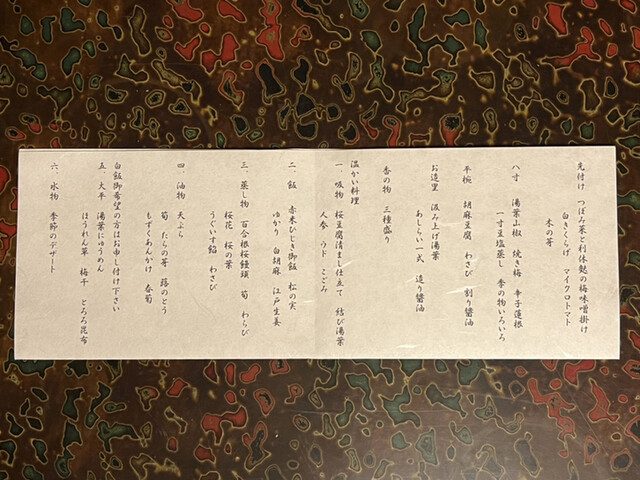 先付け　つぼみ菜と利休麩の梅味噌掛け
白きくらげ　マイクロトマト
木の芽
八寸　湯葉山椒　焼き梅　辛子蓮根
一寸豆塩蒸し　季の物いろいろ
平椀　胡麻豆腐　わさび　割り醤油
お造里　汲み上げ湯葉
あしらい一式　造り醤油
香の物　三種盛り
温かい料理
一、吸物　桜豆腐清まし仕立て　結び湯葉
人参　ウド　こごみ
二、飯　赤米ひじき御飯　松の実
ゆかり　白胡麻　江戸生姜
三、蒸し物　百合根桜饅頭　筍　わらび
桜花　桜の葉
うぐいす餡　わさび
四、油物　天ぷら
筍　たらの芽　蕗のとう
もずくあんかけ　春菊
白飯御希望の方はお申し付け下さい
五、大平　湯葉にゅうめん
ほうれん草　梅干　とろろ昆布
六、水物　季節のデザート